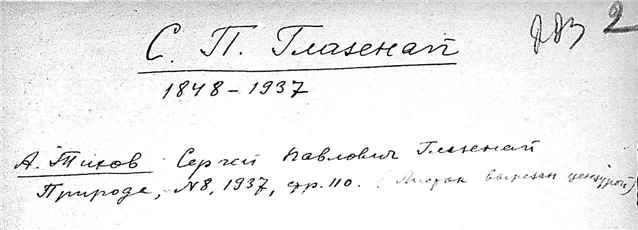 С. П. Глазенап
2
1848 – 1937
А. Тихов Сергей Павлович Глазенап
Природа, N8, 1937, стр. 110. (Листок вырезан цензурой)